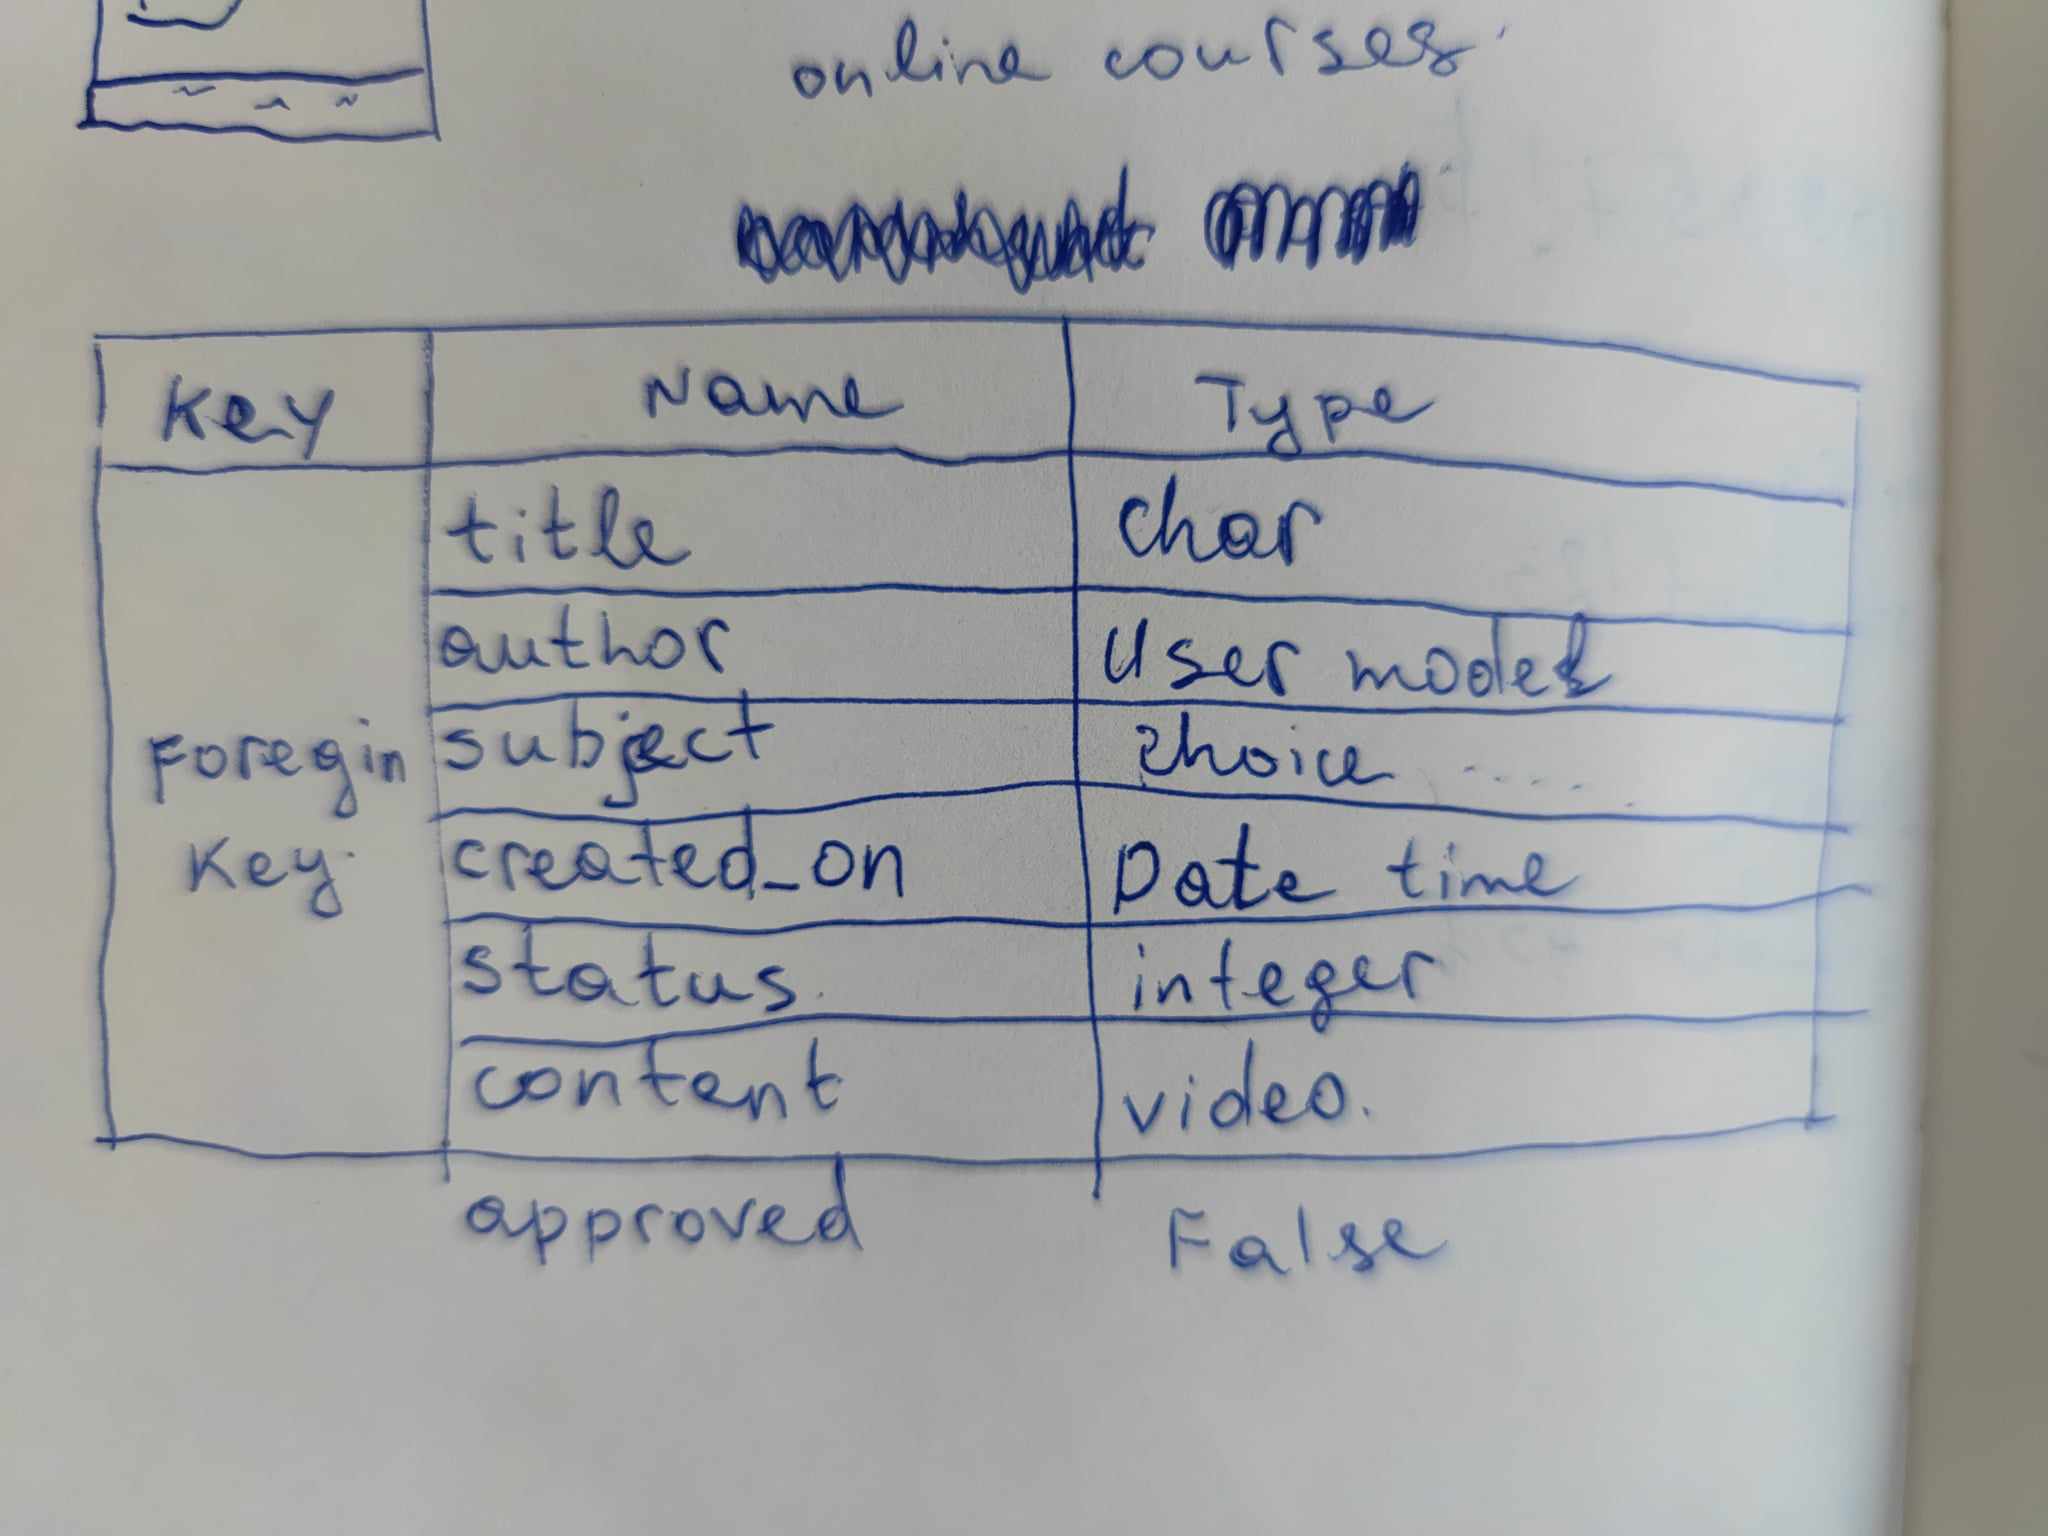 online courses.
Key Name Type
title char
author User model
subject choice ....
Foregin
Key.
created_on Date time
status. integer
content video.
approved False